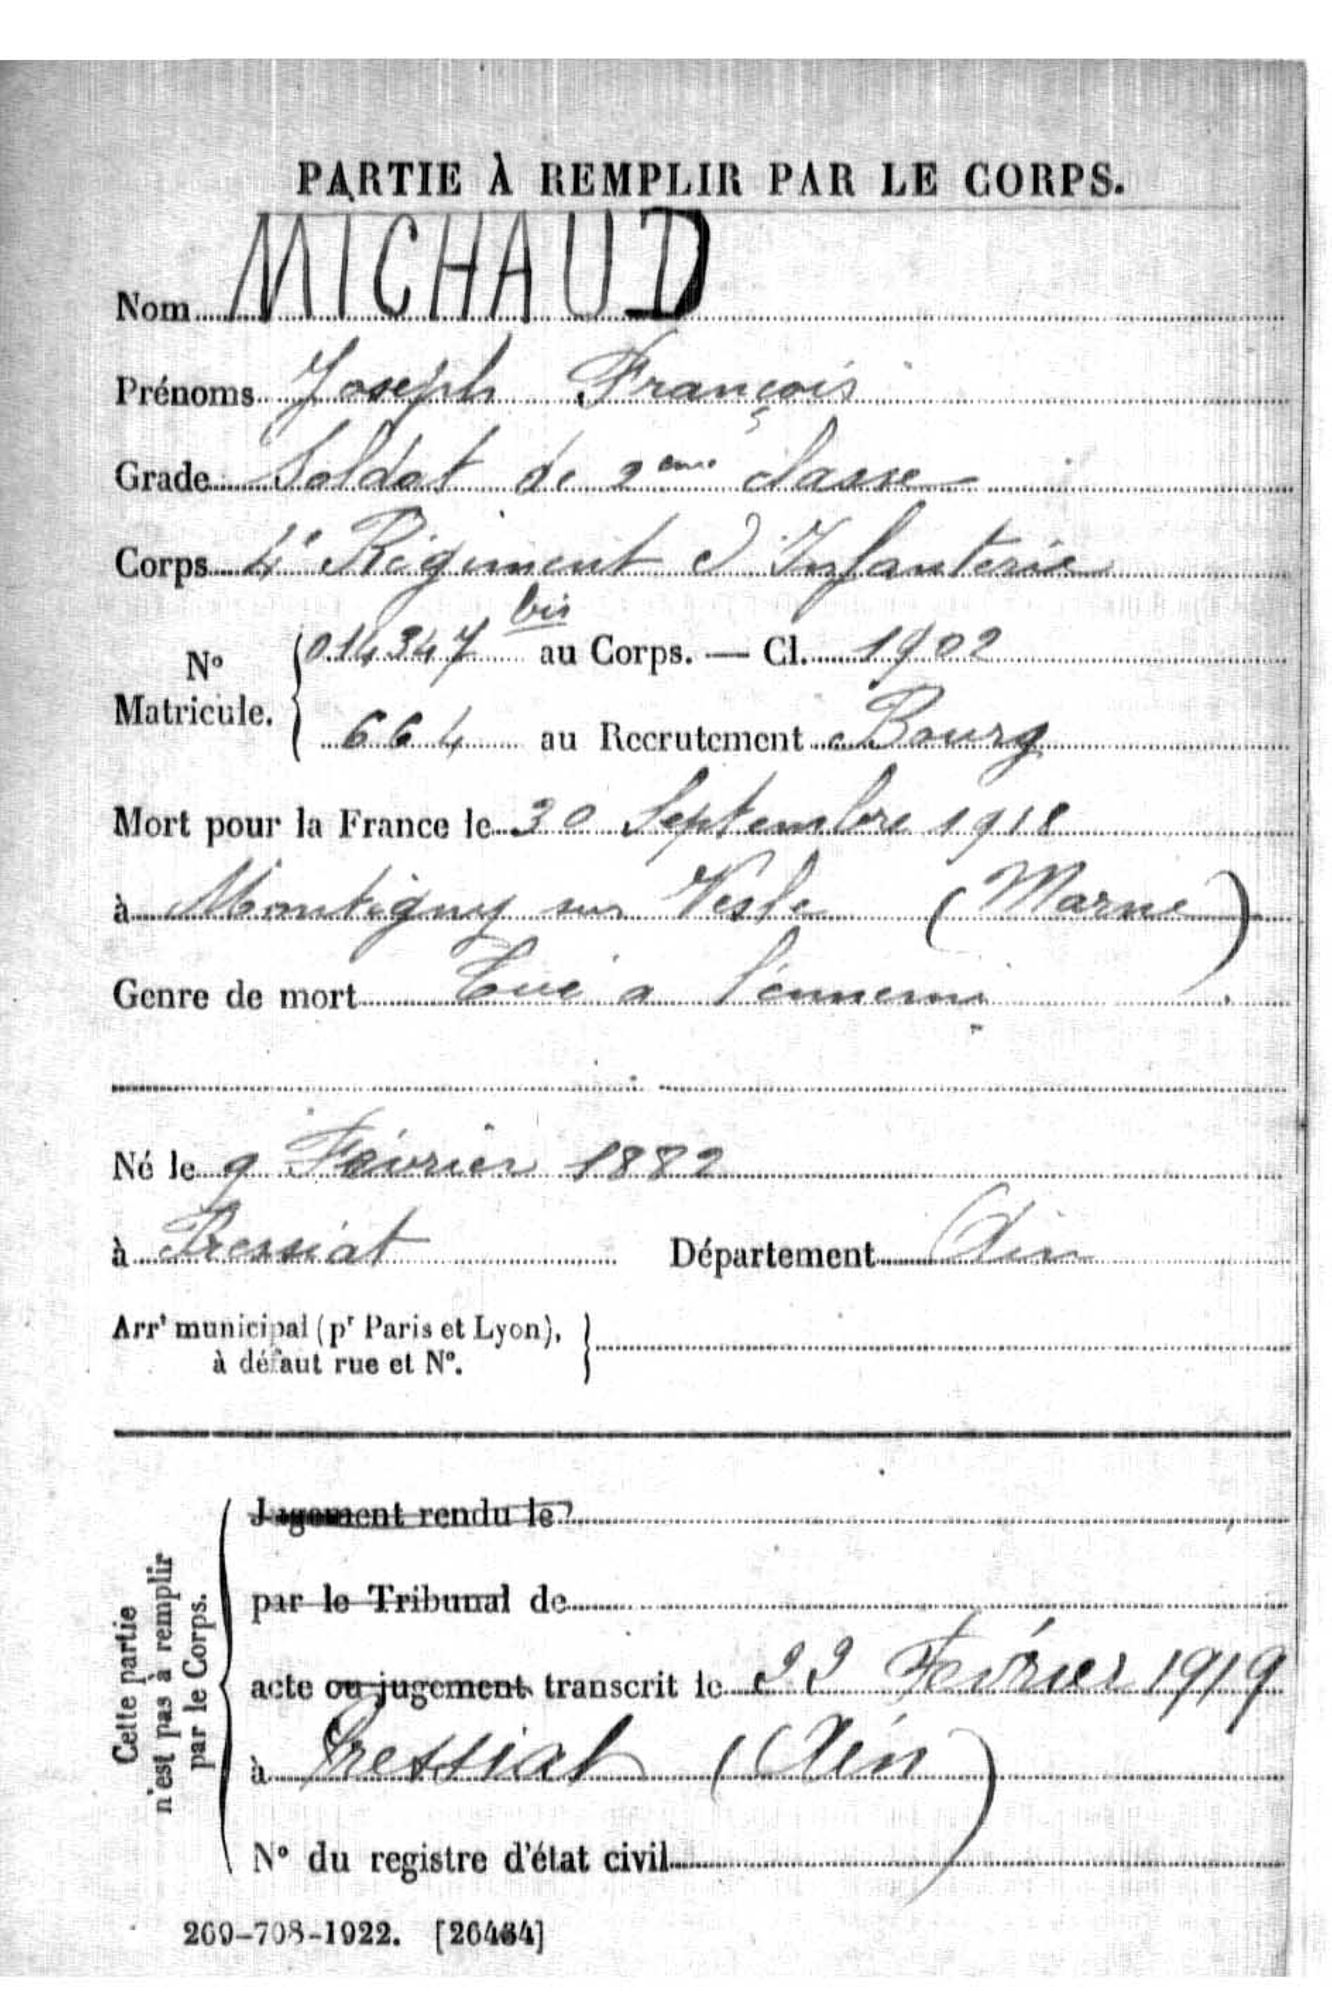 PARTIE À REMPLIR PAR LE CORPS.
Nom MICHAUD
Prénoms Joseph François
Grade Soldat de 2eme classe
Corps 4e Régiment d'Infanterie
N° Matricule. { 014347 bis au Corps. — Cl. 1902
664 au Recrutement Bourg
Mort pour la France le 30 Septembre 1918
à Montigny sur Vesle (Marne)
Genre de mort Tué a l'ennemi
Né le 9 Février 1882
à Pressiat Département Ain
Arrt municipal (pr Paris et Lyon), }
à défaut rue et N°.
Cette partie
n'est pas à remplir
par le Corps.
Jugement rendu le
par le Tribunal de
acte ou jugement transcrit le 22 Février 1919
à Pressiat (Ain)
N° du registre d'état civil
269-708-1922. [26434]